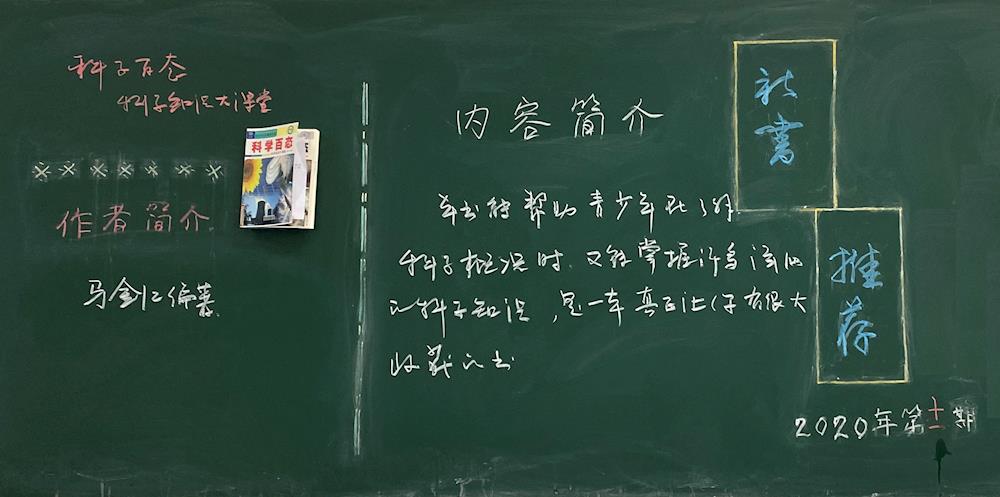 科学百态
科学知识大课堂
科学百态
作者简介
马金仁编著
内容简介
本书能帮助青少年既了解
科学概况时，又能掌握许多
的科学知识，是一本真正让学子有很大
收获的书
新书
推荐
2020年第十一期